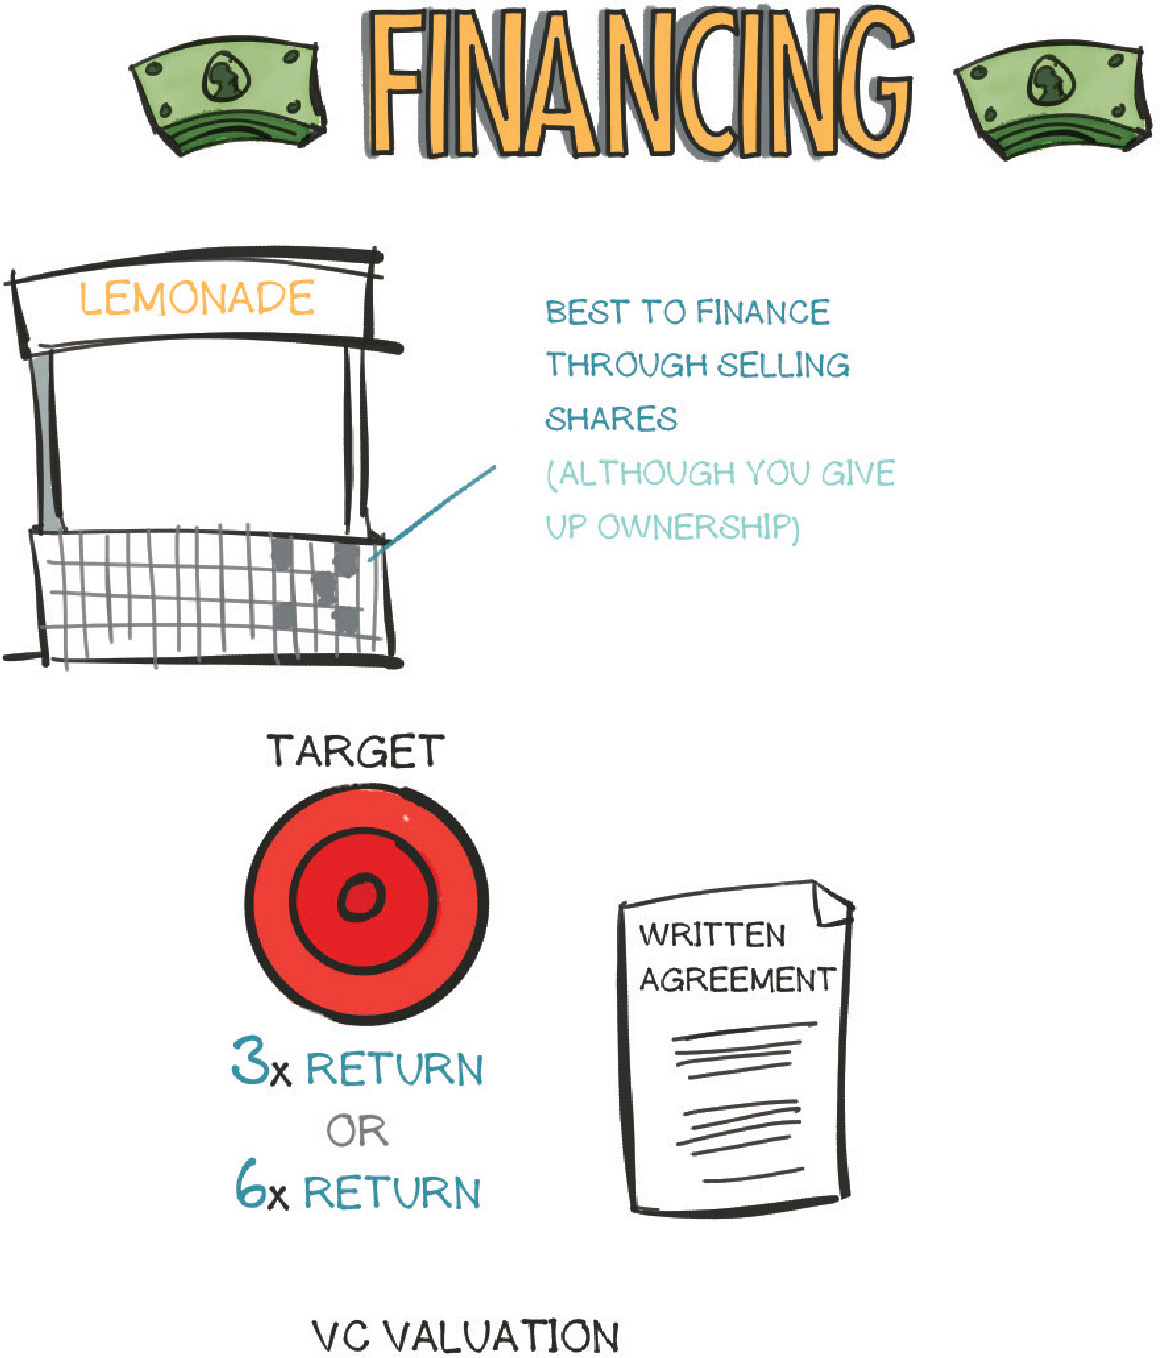 FINANCING
LEMONADE
BEST TO FINANCE
THROUGH SELLING
SHARES
(ALTHOUGH YOU GIVE
UP OWNERSHIP)
TARGET
3x RETURN
OR
6x RETURN
WRITTEN
AGREEMENT
VC VALUATION